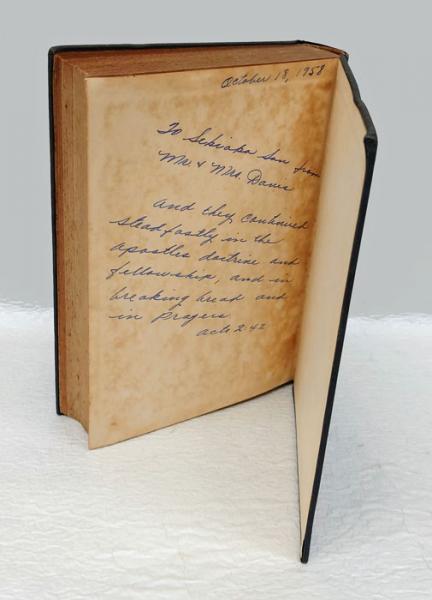 October 18, 1958
To Sekioka San from
Mr. & Mrs. Davis
And they continued
steadfastly in the
apostles doctrine and
fellowship, and in
breaking bread and
in Prayers.
Acts 2:42